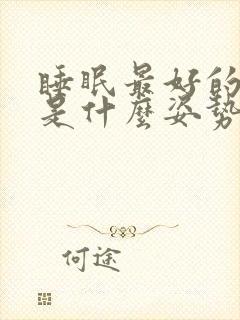 睡眠最好的
是什麼姿勢
何途